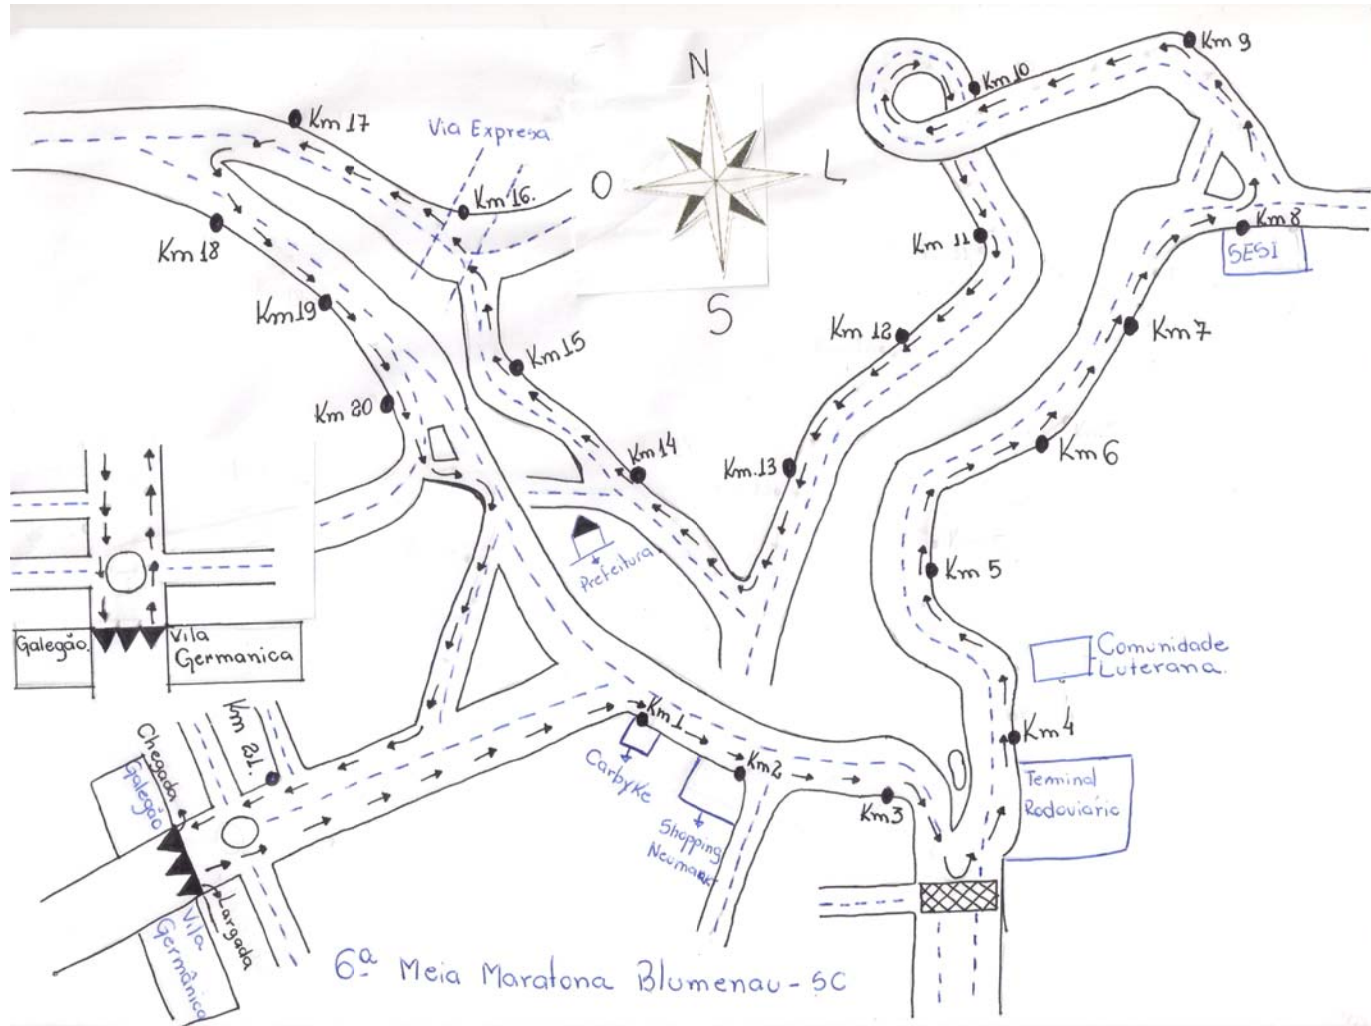 N
Km 9
Km 10
Km 17
Via Expresa
O
L
Km 16.
Km 18
Km 11
Km 8
SESI
S
Km 19
Km 12
Km 7
Km 15
Km 20
Km 14
Km.13
Km 6
Prefeitura
Km 5
Galegão.
Vila
Germanica
Comunidade
Luterana.
Km 21.
Km 1
Km 4
Chegada
Galegão
Carbyke
Km 2
Km 3
Teminal
Rodoviário
Shopping
Neumark
Largada
Vila
Germânica
6ª Meia Maratona Blumenau - SC